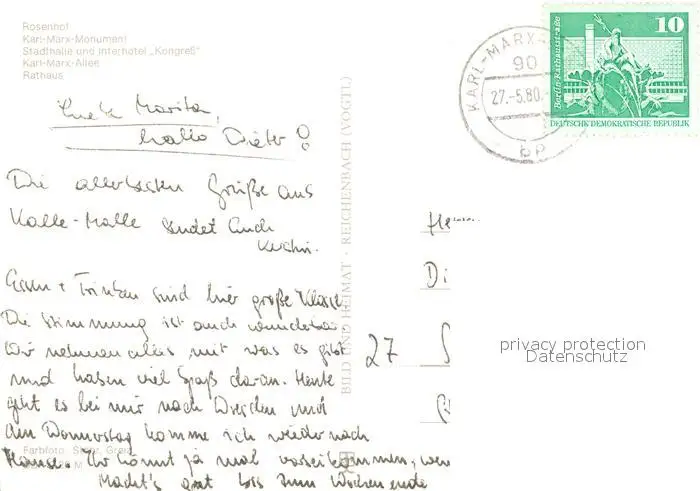 Rosenhof
Karl-Marx-Monument
Stadthalle und Interhotel „Kongreß"
Karl-Marx-Allee
Rathaus
10
Berlin-Rathausstraße
DEUTSCHE DEMOKRATISCHE REPUBLIK
KARL-MARX-
90
27.-5.80.
bp
Marita,
hallo Dieter!
Die allerbesten Grüße aus
Kalle-Malle sendet Euch
BILD UND HEIMAT · REICHENBACH (VOGTL)
Essen + Trinken sind hier große Klasse
Die Stimmung ist auch wunderbar
Wir nehmen alles mit was es gibt
und haben viel Spaß daran. Heute
geht es bei mir nach Dresden und
am Donnerstag komme ich wieder nach
Hause. Ihr könnt ja mal vorbeikommen,
Macht's gut bis zum Wochenende
Farbfoto:
Di
27
privacy protection
Datenschutz